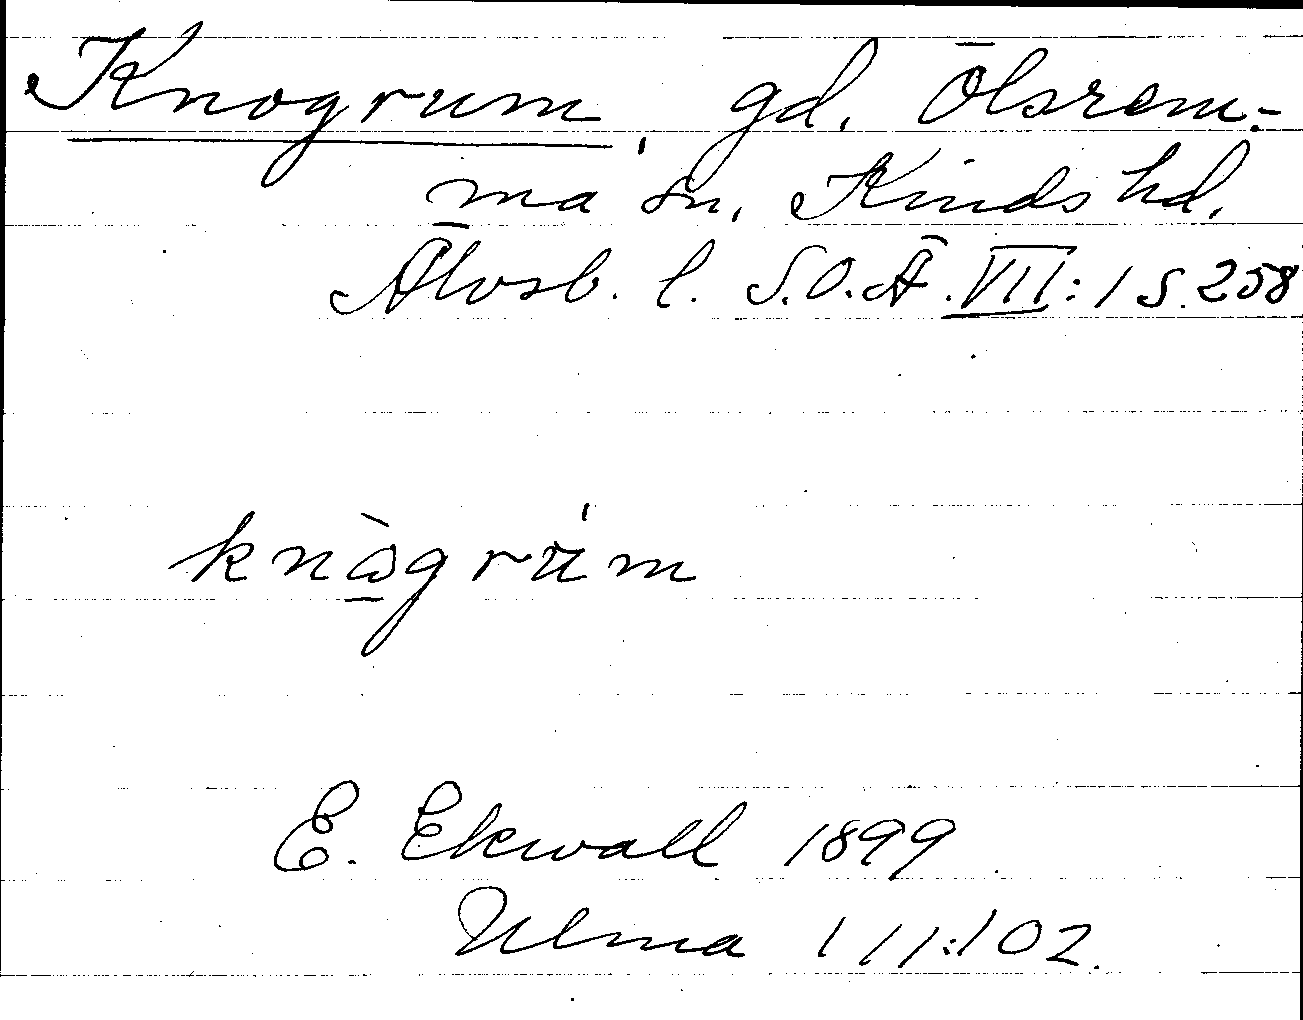 Knogrum, gd. Ölsrem-
ma sn. Kinds hd.
Älvsb. l. S.O.Ä. VII:1 S.258
knò̠grúm
E. Ekwall 1899
Ulma 111:102.